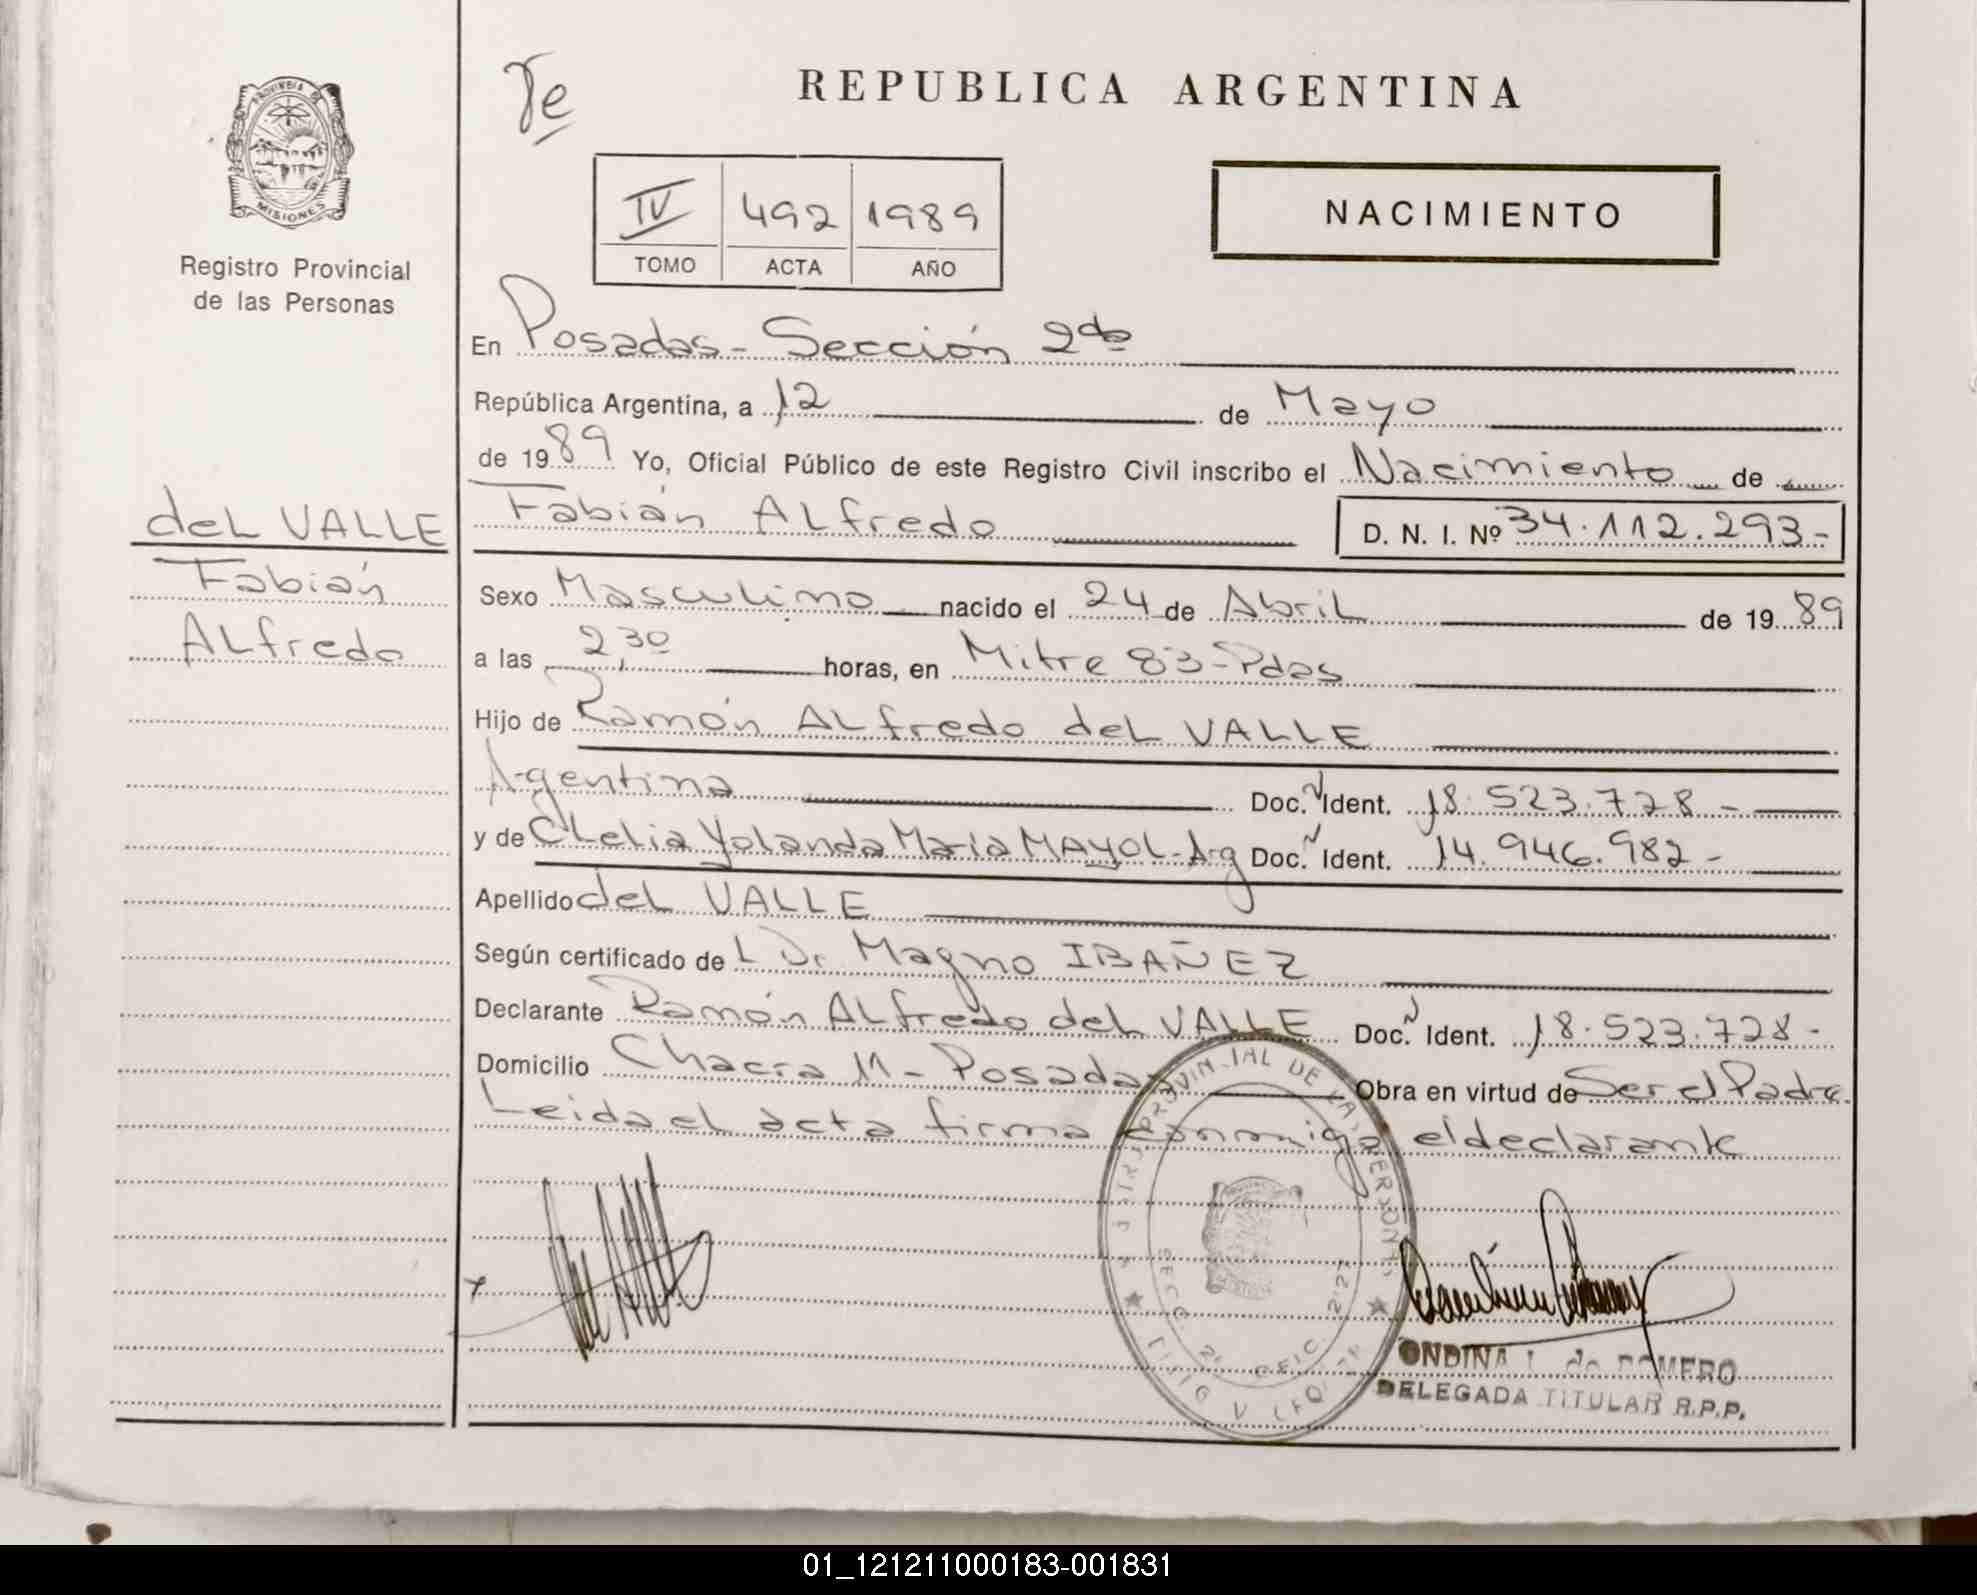 PROVINCIA DE
MISIONES
Registro Provincial
de las Personas
del VALLE
Fabián
Alfredo
REPUBLICA ARGENTINA
IV 492 1989
TOMO ACTA AÑO
NACIMIENTO
En Posadas - Sección 2da
República Argentina, a 12 de Mayo
de 1989 Yo, Oficial Público de este Registro Civil inscribo el Nacimiento de
Fabián Alfredo D. N. I. Nº 34.112.293-
Sexo Masculino nacido el 24 de Abril de 1989
a las 2,30 horas, en Mitre 83-Pdas
Hijo de Ramón Alfredo del VALLE
Argentina Doc. Ident. 18.523.728-
y de Clelia Yolanda María MAYOL-Arg Doc. Ident. 14.946.982-
Apellido del VALLE
Según certificado de L Dr Magno IBAÑEZ
Declarante Ramón Alfredo del VALLE Doc. Ident. 18.523.728-
Domicilio Chacra 11 - Posadas Obra en virtud de Ser el Padre.
Leida el acta firma conmigo el declarante
ONDINA de ROMERO
DELEGADA TITULAR R.P.P.
01_121211000183-001831